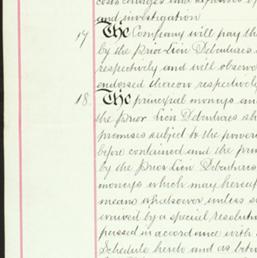 costs charges and expenses of
and investigation
17 The Company will pay the
by the Prior Lien Debentures a
respectively and will observe
endorsed thereon respectively
18. The principal moneys and
the Prior Lien Debentures sha
premises subject to the powers
before contained and the prin
by the Prior Lien Debentures
moneys which may hereaf
means whatsoever unless s
arrived by a special resolution
passed in accordance with
Schedule hereto and as betw